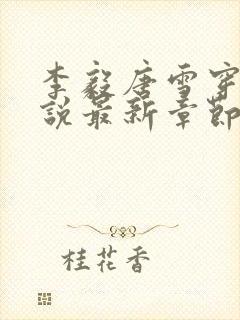 李毅唐雪穿
說最新章節
桂花香